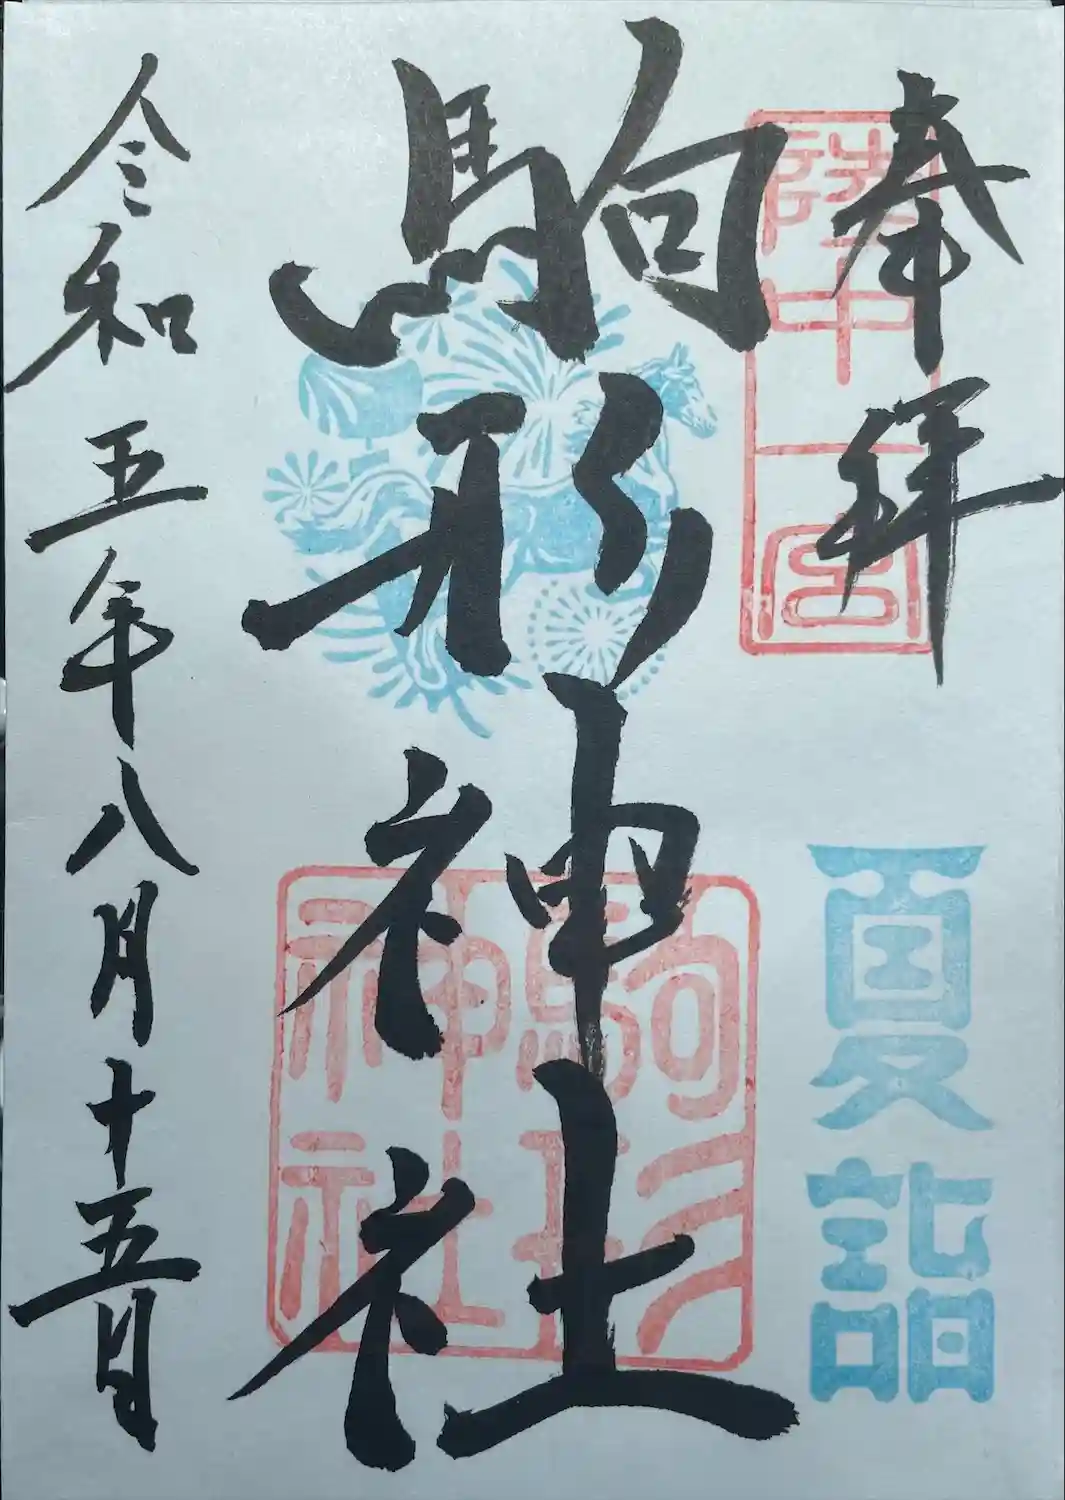 奉拝
陸中一宮
夏詣
駒形神社
駒形
神社
令和五年八月十五日